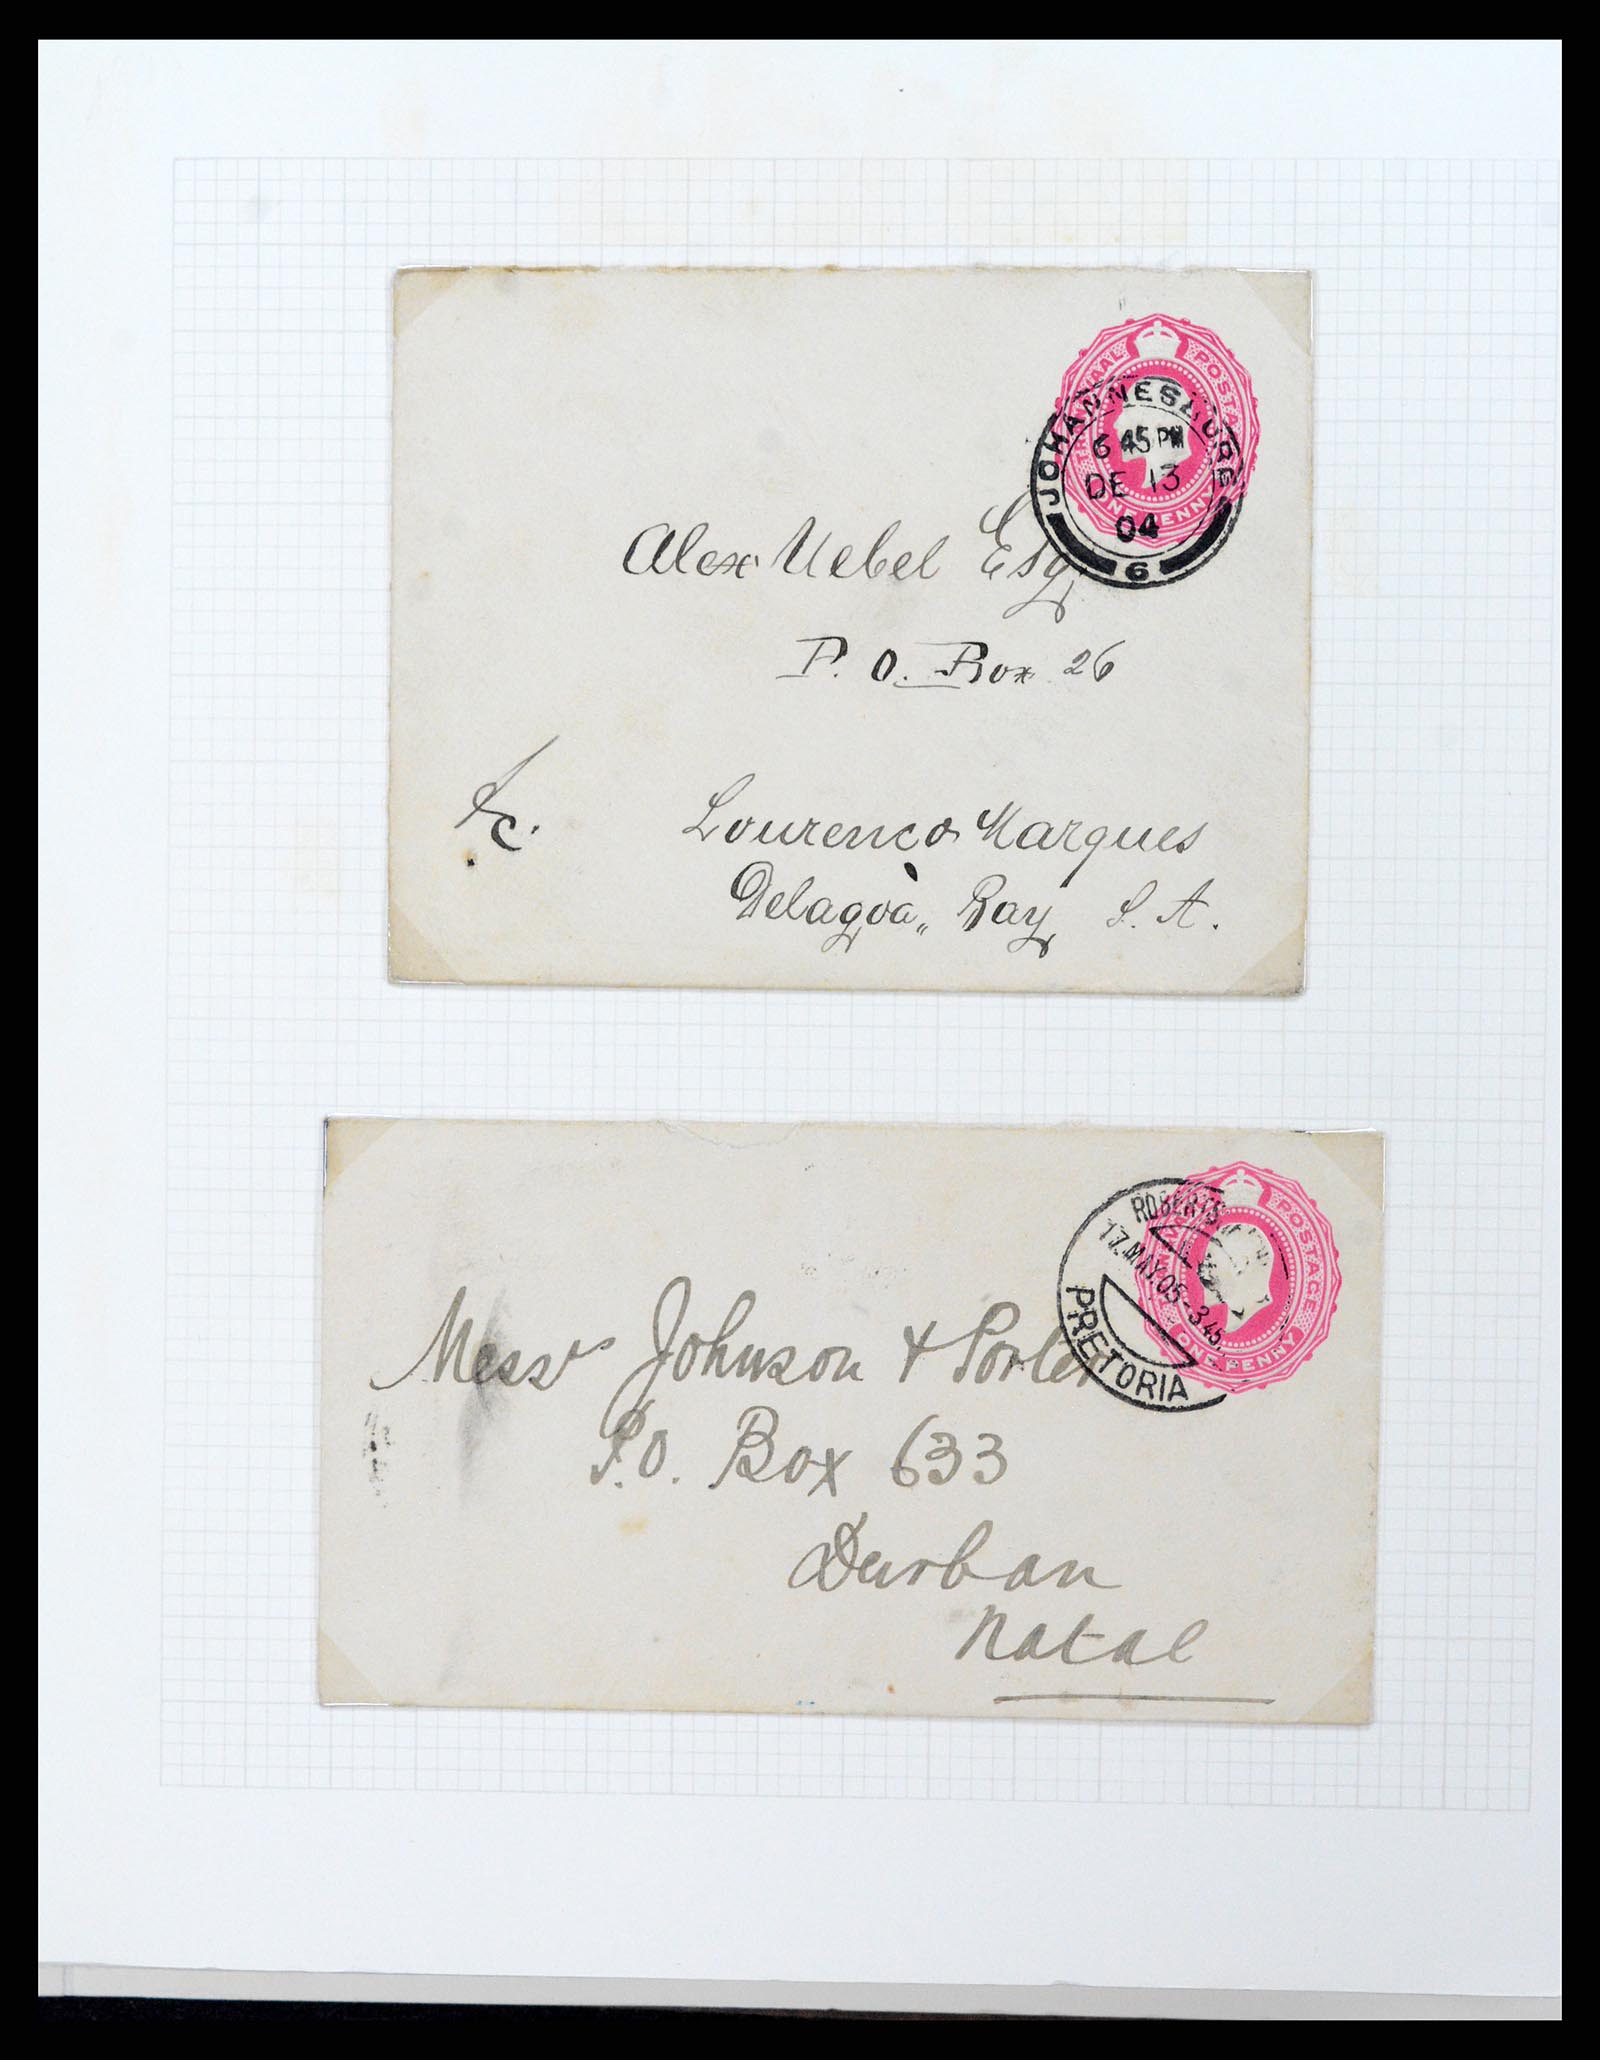 POSTA
NE PENNY
JOHANNESBURG
6 45 PM
DE 13
04
6
Alex Uebel Esq
P. O. Box 26
Lourenco Marques
Delagoa Bay S. A.
POSTAGE
ONE PENNY
ROBERTS
17.MAY.05-3.45
PRETORIA
Messrs Johnson + Porter
P.O. Box 633
Durban
Natal